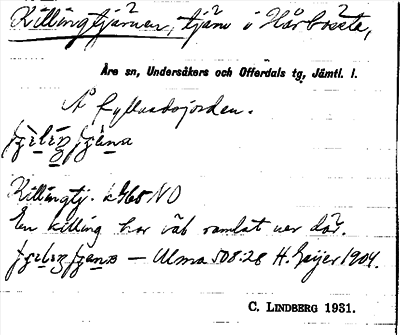 Killingtjärnen, tjärn i Hårbörsta,
Åre sn, Undersåkers och Offerdals tg, Jämtl. l.
Å fyllvedsjorden.
Killingtj. k 965 NO
En killing har väl ramlat ner där.
— Ulma 508:28 H. Geijer 1904.
C. LINDBERG 1931.